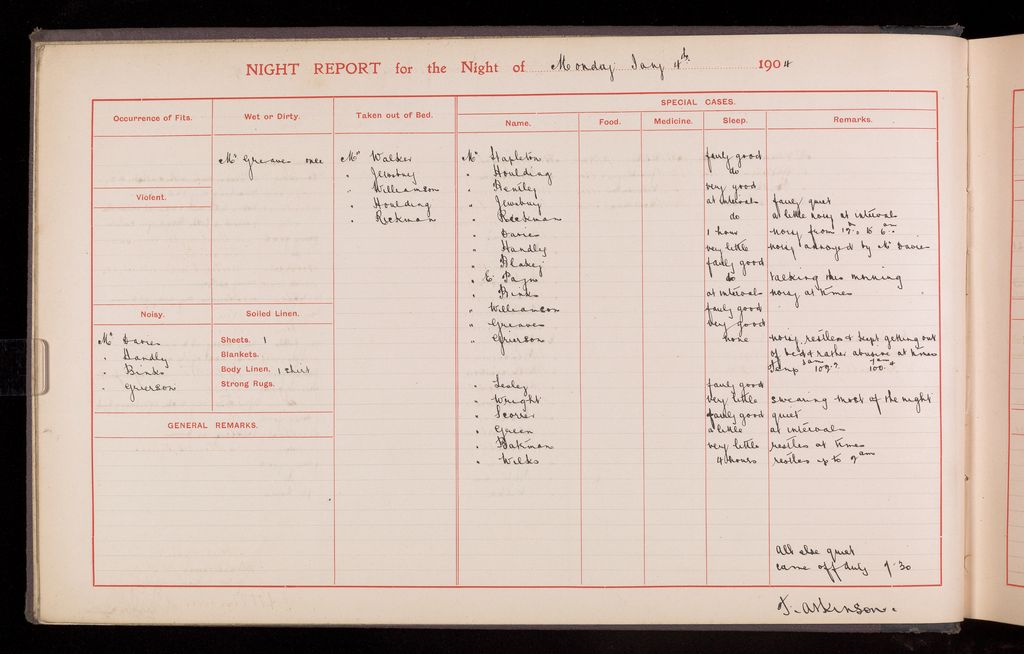 NIGHT REPORT for the Night of Monday Jany 4th 1904
Occurrence of Fits.
Wet or Dirty.
Mr Greaves once
Taken out of Bed.
Mr Walker
" Jewsbury
" Williamson
" Houlding
" Rickman
Violent.
Noisy.
Mr Davies
" Handly
" Binks
" Grierson
Soiled Linen.
Sheets. 1
Blankets.
Body Linen. 1 shirt
Strong Rugs.
GENERAL REMARKS.
SPECIAL CASES.
Name. Food. Medicine. Sleep. Remarks.
Mr Stapleton fairly good
" Houlding do
" Bentley very good
" Jewsbury at intervals fairly quiet
" Rickman do a little noisy at intervals
" Davies 1 hour noisy from to 6
" Handly very little noisy annoyed by Mr Davies
" Blakey fairly good
" E Payne do talking this morning
" Binks at intervals noisy at times
" Williamson fairly good
" Greaves very good
" Grierson none noisy, restless & kept getting out
of bed & rather abusive at times
Temp
" Lesley fairly good
" Wright very little swearing most of the night
" Scorer fairly good quiet
" Green a little at intervals
" Bateman very little restless at times
" Wilks 4 hours restless up to 2 am
All else quiet
came off duty 7.30
T. Atkinson.